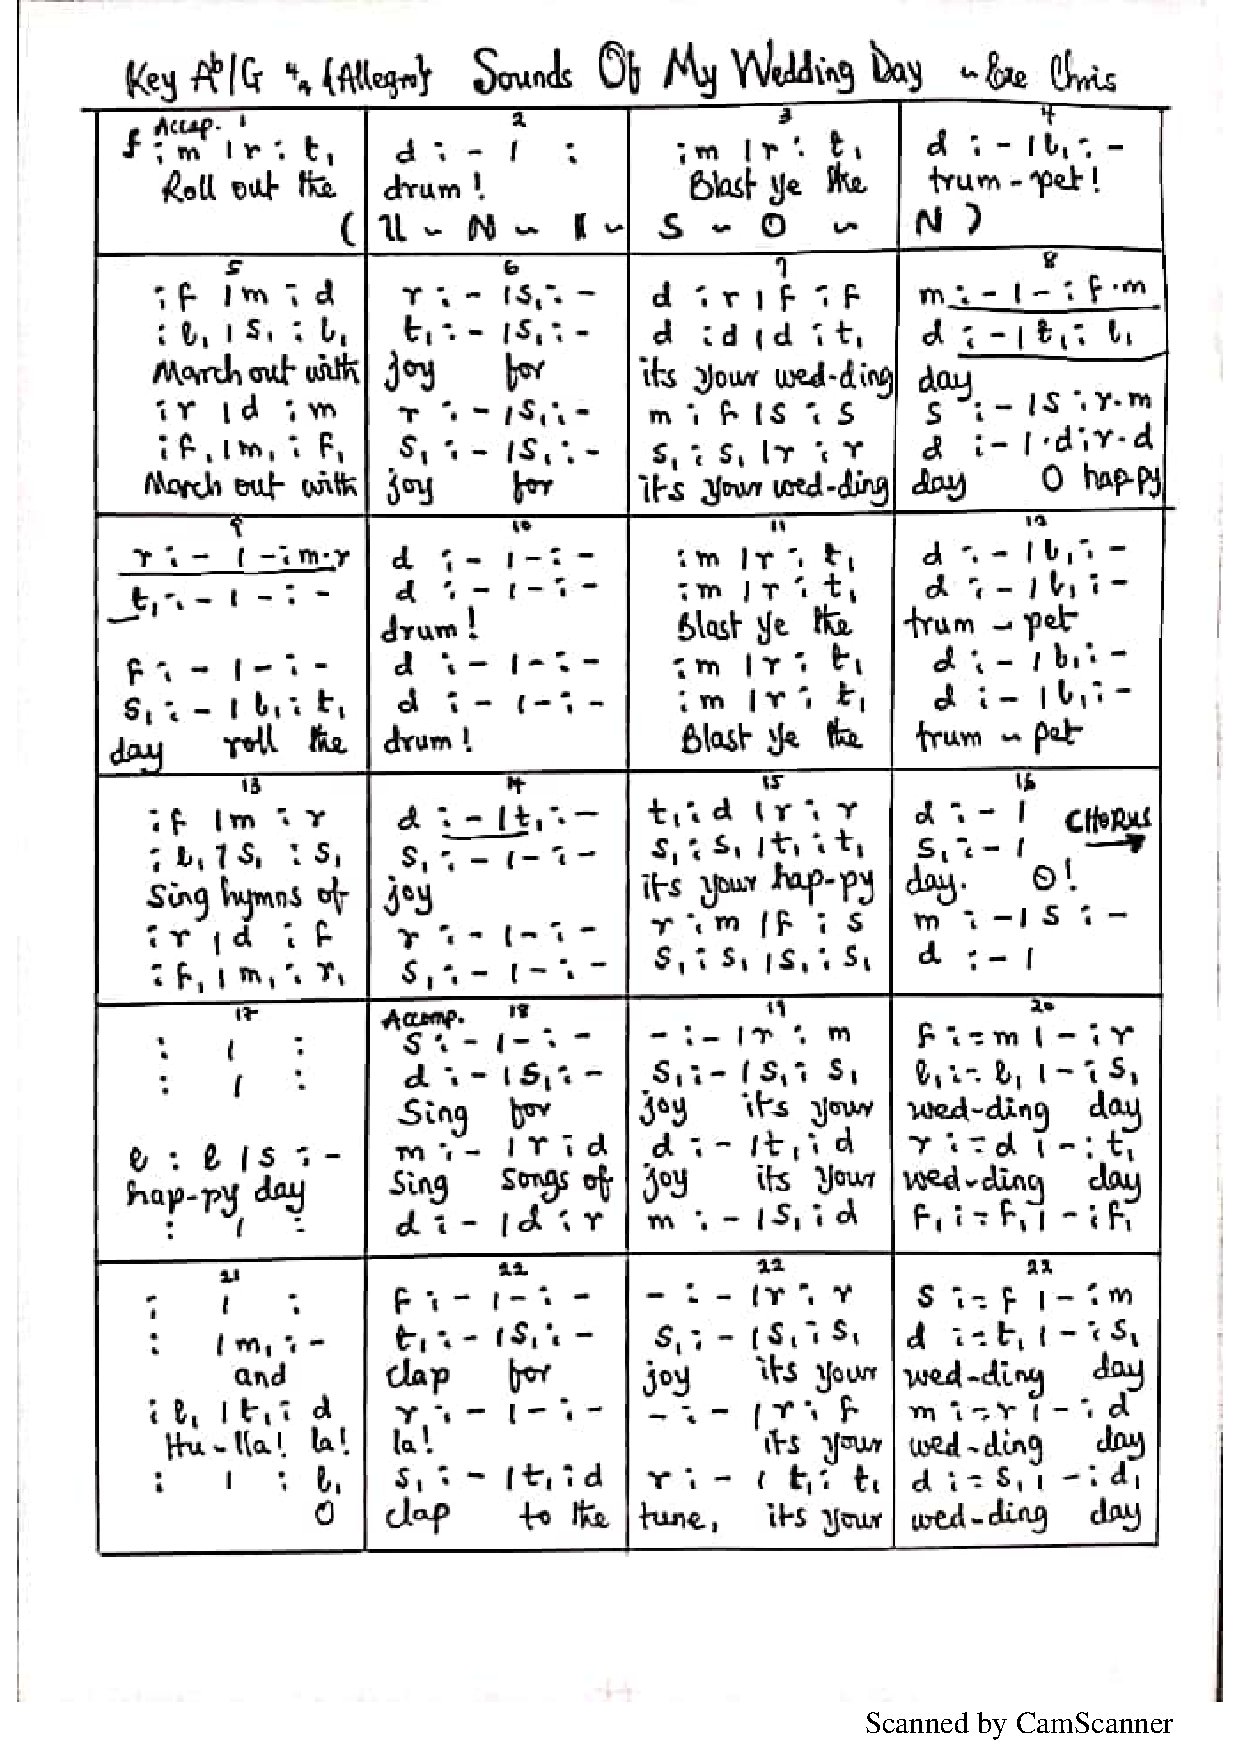 Key Ab/G 4/4 {Allegro} Sounds Of My Wedding Day ~ Eze Chris
Accap. 1
f : m | r : t₁
Roll out the
2
d : - | :
drum !
3
: m | r : t₁
Blast ye the
4
d : - | l₁ : -
trum - pet !
( U ~ N ~ I ~ S ~ O ~ N )
5
: f | m : d
: l₁ | s₁ : l₁
March out with
: r | d : m
: f₁ | m₁ : f₁
March out with
6
r : - | s₁ : -
t₁ : - | s₁ : -
joy for
r : - | s₁ : -
s₁ : - | s₁ : -
joy for
7
d : r | f : f
d : d | d : t₁
its your wed-ding
m : f | s : s
s₁ : s₁ | r : r
it's your wed-ding
8
m : - | - : f.m
d : - | t₁ : l₁
day
s : - | s : r.m
d : - | .d : r.d
day O hap-py
9
r : - | - : m.r
t₁ : - | - : -
f : - | - : -
s₁ : - | l₁ : t₁
day roll the
10
d : - | - : -
d : - | - : -
drum !
d : - | - : -
d : - | - : -
drum !
11
: m | r : t₁
: m | r : t₁
Blast ye the
: m | r : t₁
: m | r : t₁
Blast ye the
12
d : - | l₁ : -
d : - | l₁ : -
trum - pet
d : - | l₁ : -
d : - | l₁ : -
trum - pet
13
: f | m : r
: l₁ | s₁ : s₁
Sing hymns of
: r | d : f
: f₁ | m₁ : r₁
14
d : - | t₁ : -
s₁ : - | - : -
joy
r : - | - : -
s₁ : - | - : -
15
t₁ : d | r : r
s₁ : s₁ | t₁ : t₁
it's your hap-py
r : m | f : s
s₁ : s₁ | s₁ : s₁
16
d : - | CHORUS
s₁ : - |
day. O!
m : - | s : -
d : - |
17
: | :
: | :
l : l | s : -
hap-py day
: | :
Accomp. 18
s : - | - : -
d : - | s₁ : -
Sing for
m : - | r : d
Sing songs of
d : - | d : r
19
- : - | r : m
s₁ : - | s₁ : s₁
joy it's your
d : - | t₁ : d
joy its your
m : - | s₁ : d
20
f : = m | - : r
l₁ : = l₁ | - : s₁
wed-ding day
r : = d | - : t₁
wed-ding day
f₁ : = f₁ | - : f₁
21
: | :
: | m₁ : -
and
: l₁ | t₁ : d
Hu-lla! la!
: | : l₁
O
22
f : - | - : -
t₁ : - | s₁ : -
clap for
r : - | - : -
la!
s₁ : - | t₁ : d
clap to the
22
- : - | r : r
s₁ : - | s₁ : s₁
joy its your
- : - | r : f
its your
r : - | t₁ : t₁
tune, it's your
23
s : = f | - : m
d : = t₁ | - : s₁
wed-ding day
m : = r | - : d
wed-ding day
d : = s₁ | - : d₁
wed-ding day
Scanned by CamScanner